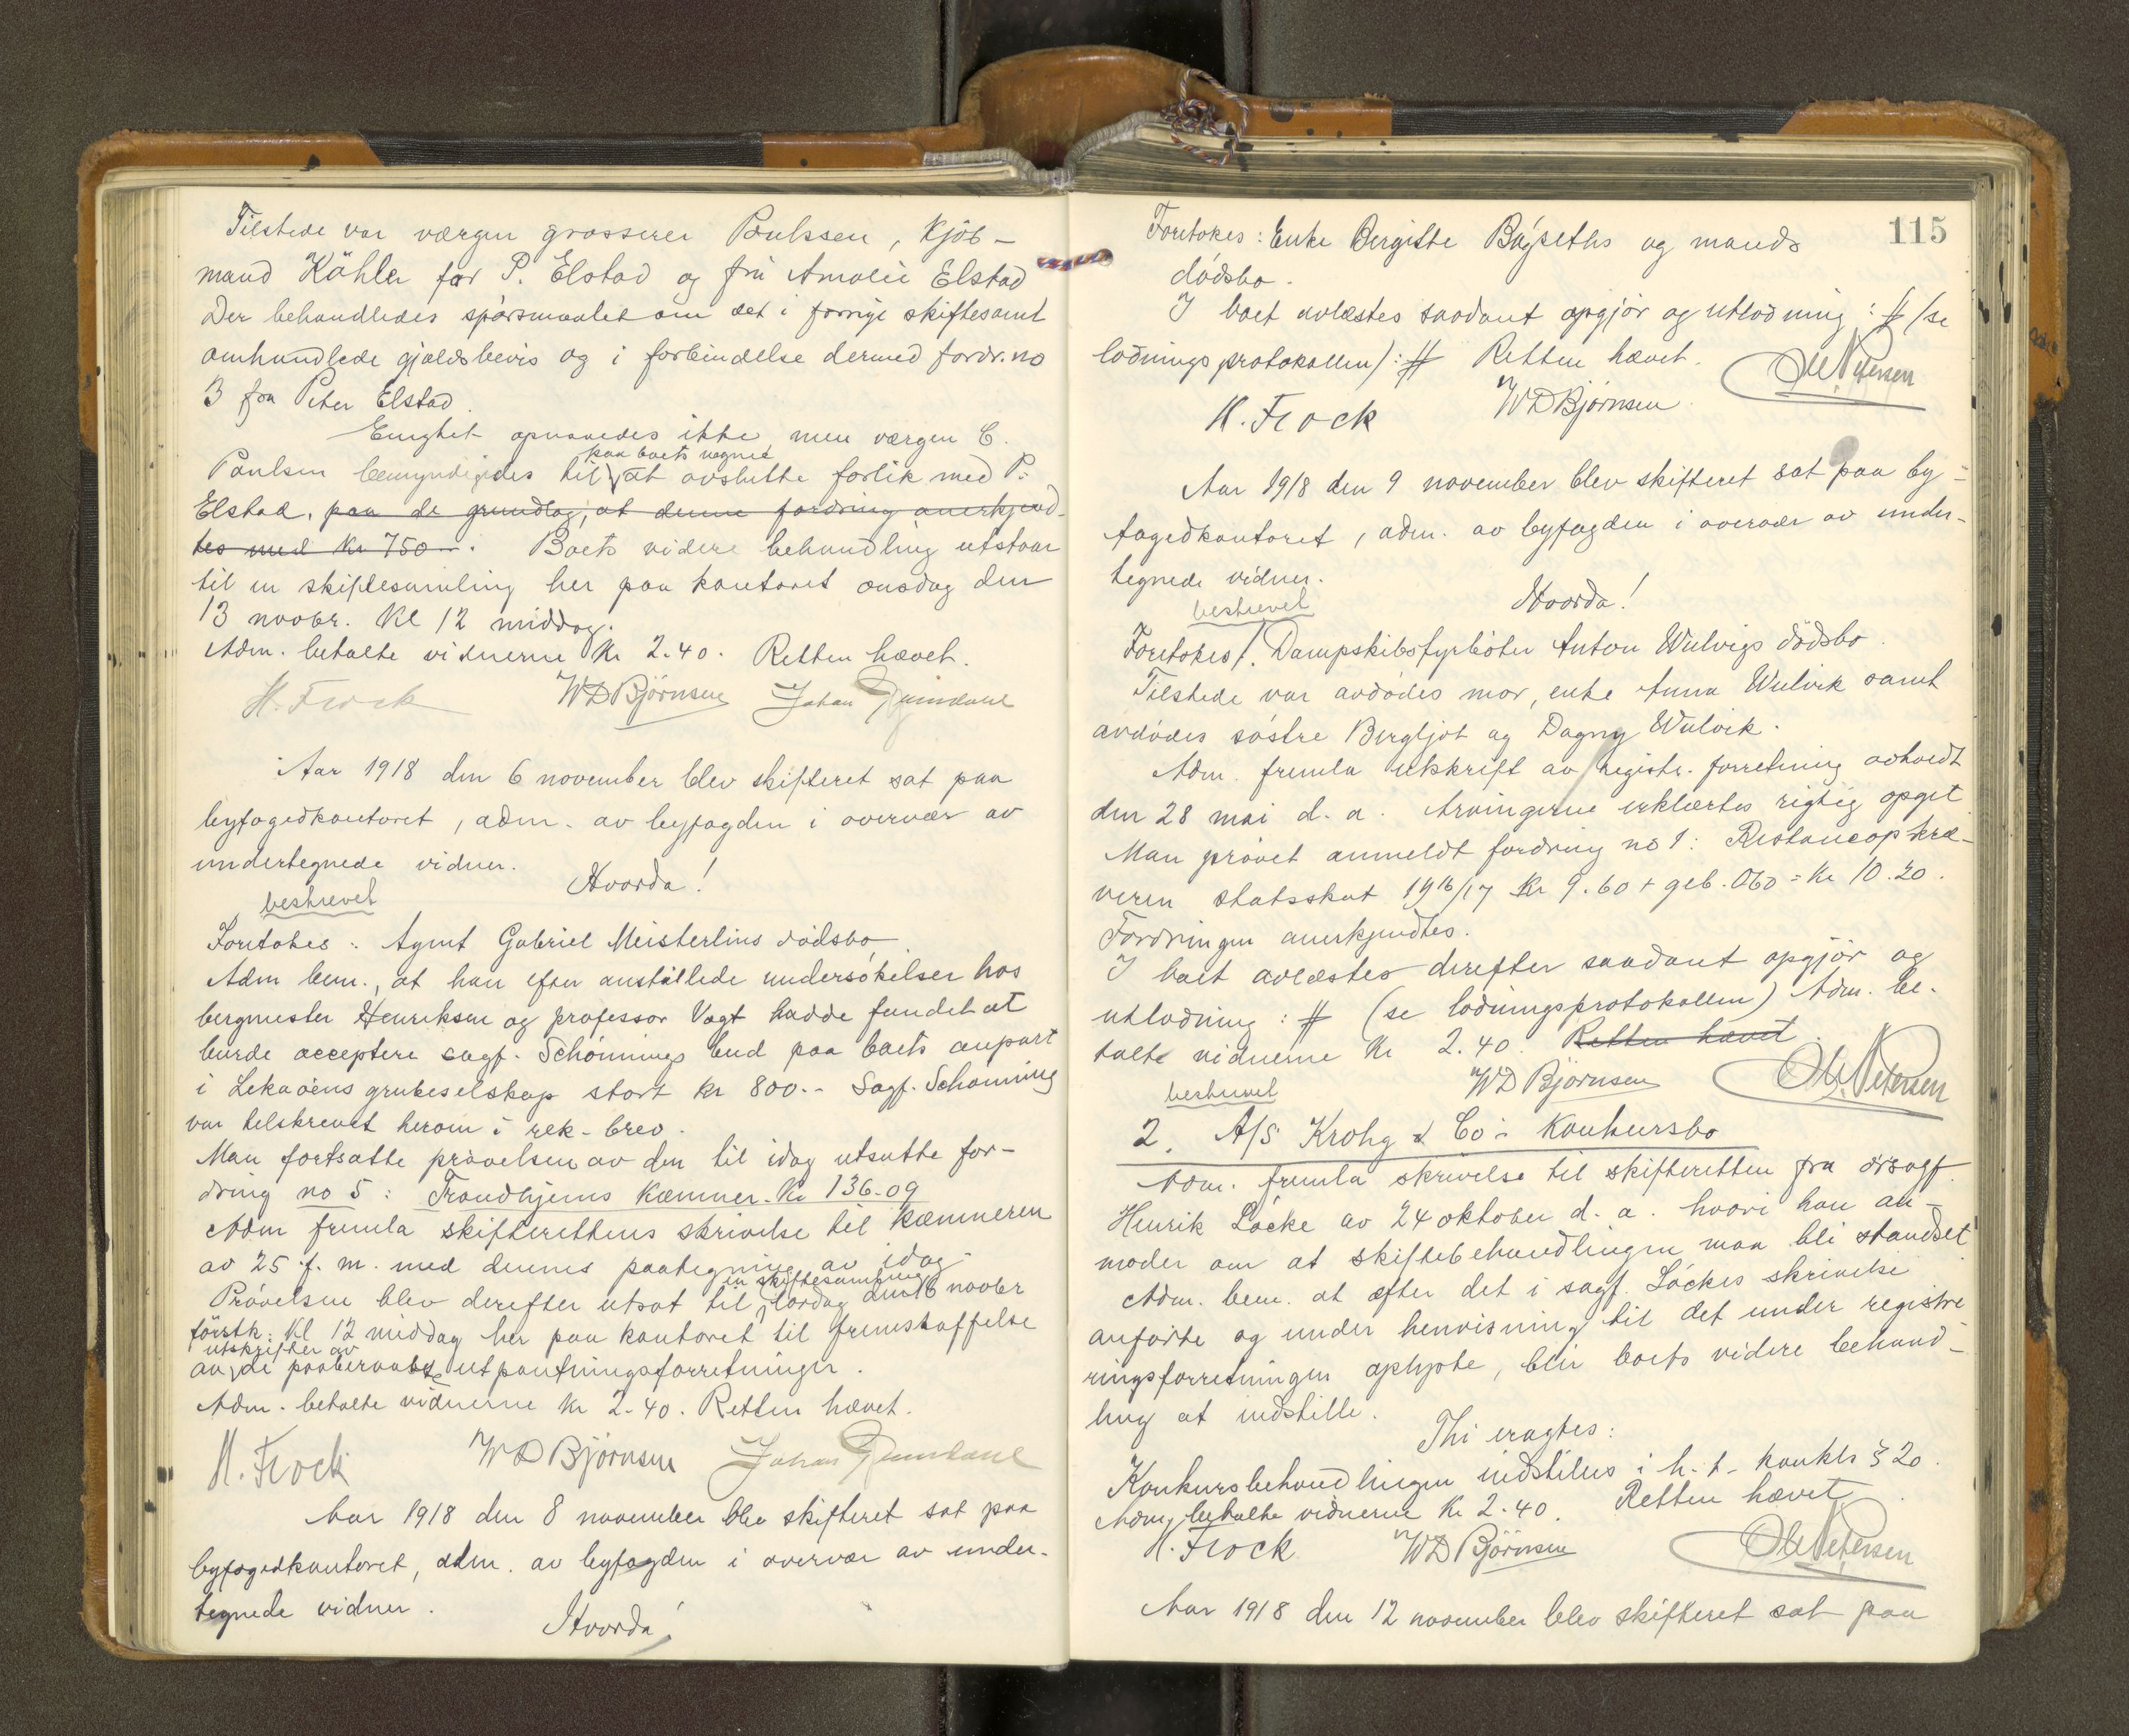 Tilstede var værgen grosserer Paulssen, kjöb-
mand Köhler for P. Elstad og fru Amalie Elstad
Der behandledes spörsmaalet om det i forrige skiftesaml
omhandlede gjældsbevis og i forbindelse dermed fordr. no
3 fra Peter Elstad.
Enighet opnaaedes ikke, men værgen C.
paa boets vegne
Paulsen bemyndigedes til at avslutte forlik med P.
Elstad. paa de grundlag, at denne fordring anerkjend-
tes med Kr 750-. Boets videre behandling utstaar
til en skiftesamling her paa kontoret onsdag den
13 novbr. Kl 12 middag.
Adm. betalte vidnerne Kr 2.40. Retten hævet.
H. Frock WD Björnsen Johan
Aar 1918 den 6 november blev skifteret sat paa
byfogedkontoret, adm. av byfogden i overvær av
undertegnede vidner.
Hvorda!
beskrevet
Foretokes: Agent Gabriel Meisterlins dödsbo
Adm bem., at han efter anstillede undersökelser hos
bergmester Henriksen og professor Vogt hadde fundet at
burde acceptere sagf. Schönnings bud paa boets anpart
i Lekaöens grubeselskap stort kr 800.- Sagf. Schönning
var tilskrevet herom i rek-brev.
Man fortsatte prövelsen av den til idag utsatte for-
dring no 5: Trondhjems Kæmner. Kr 136.09
Adm fremla skifterettens skrivelse til kæmneren
av 25 f. m. med dennes paategning av idag
en skiftesamling
Prövelsen blev derefter utsat til lördag den 16 novbr
förstk. Kl 12 middag her paa kontoret til fremskaffelse
utskrifter av
av de paaberaabte utpantningsforretninger.
Adm. betalte vidnerne kr 2.40. Retten hævet.
H. Frock WD Björnsen Johan
Aar 1918 den 8 november blev skifteret sat paa
byfogedkontoret, adm. av byfogden i overvær av under-
tegnede vidner.
Hvorda!
115
Foretokes: Enke Bergitte Böyseths og mands
dödsbo.
I boet avlæstes saadant opgjör og utlodning: # (se
lodningsprotokollen): # Retten hævet.
H. Frock WD Björnsen Ole Petersen
Aar 1918 den 9 november blev skifteret sat paa by-
fogedkontoret, adm. av byfogden i overvær av under-
tegnede vidner.
Hvorda!
beskrevet
Foretokes 1. Dampskibsfyrböter Anton Wulvigs dödsbo.
Tilstede var avdödes mor, enke Anna Wulvik samt
avdödes söstre Bergljot og Dagny Wulvik.
Adm. fremla utskrift av registr. forretning avholdt
den 28 mai d. a. Arvingerne erklærtes rigtig opgit
Man prövet anmeldt fordring no 1: Restanceopkræ-
veren statsskat 1916/17 Kr 9.60 + geb. 060 = Kr 10.20.
Fordringen anerkjendtes.
I boet avlæstes derefter saadant opgjör og
utlodning: # (se lodningsprotokollen) Adm. be-
talte vidnerne Kr 2.40. Retten hævet.
WD Björnsen Ole Petersen
beskrevet
2. A/S Krohg & Co's Konkursbo
Adm. fremla skrivelse til skifteretten fra orsagf.
Henrik Löcke av 24 oktober d. a. hvori han an-
moder om at skiftebehandlingen maa bli standset
Adm. bem. at efter det i sagf. Löckes skrivelse
anförte og under henvisning til det under registre
ringsforretningen oplyste, blir boets videre behand-
ling at indstille.
Thi eragtes:
Konkursbehandlingen indstilles i h. t. konkls § 20.
Adm. betalte vidnerne Kr 2.40. Retten hævet.
H. Frock WD Björnsen Ole Petersen
Aar 1918 den 12 november blev skifteret sat paa